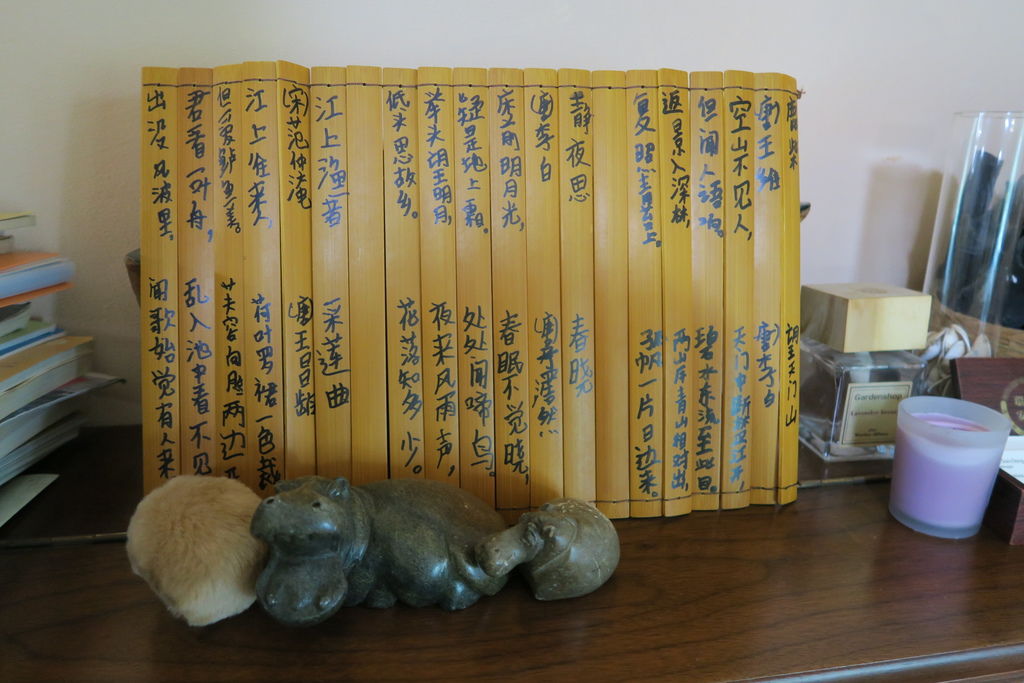 鹿柴
(唐)王维
空山不见人,
但闻人语响。
返景入深林,
复照青苔上。
静夜思
(唐)李白
床前明月光,
疑是地上霜。
举头望明月,
低头思故乡。
江上渔者
(宋)范仲淹
江上往来人,
但爱鲈鱼美。
君看一叶舟,
出没风波里。
望天门山
(唐)李白
天门中断楚江开,
碧水东流至此回。
两岸青山相对出,
孤帆一片日边来。
春晓
(唐)孟浩然
春眠不觉晓,
处处闻啼鸟。
夜来风雨声,
花落知多少。
采莲曲
(唐)王昌龄
荷叶罗裙一色裁
芙容向脸两边
乱入池中看不见
闻歌始觉有人来
Gardenshop